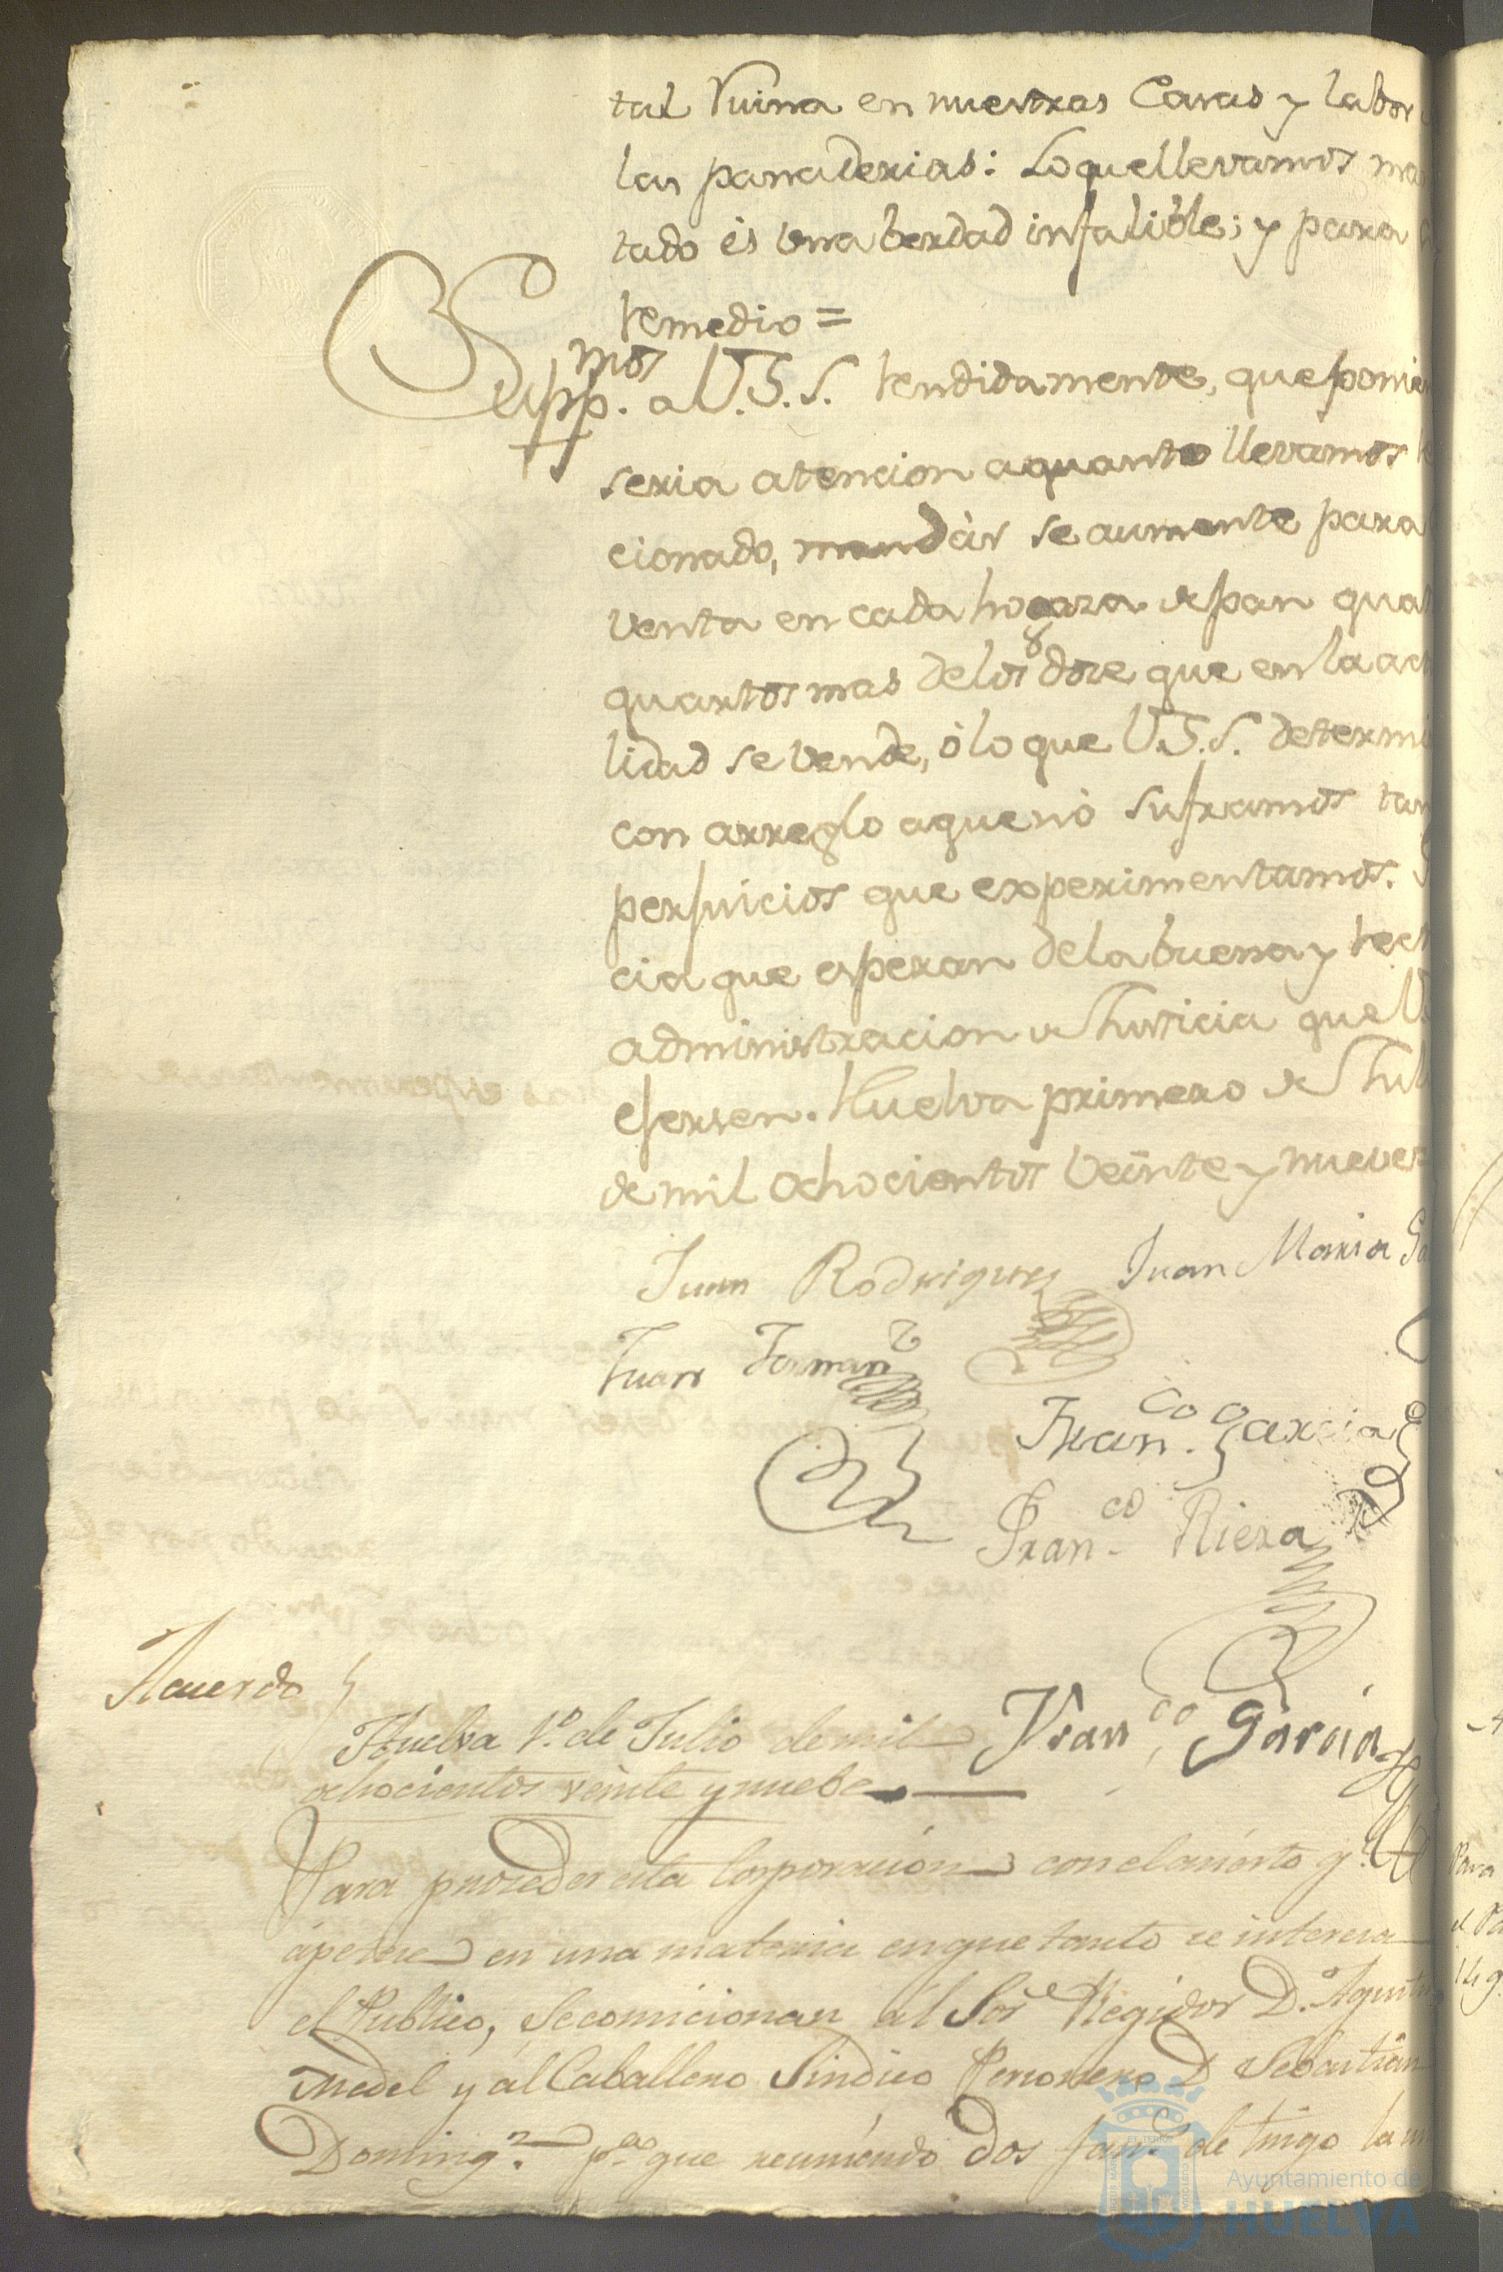 tal ruina en nuestras Casas y labor
las panaderias: Lo que llevamos ma
tado és una berdad infalible; y para
remedio =
Supp.mos a V.S.S. rendidamente, que ponien
seria atencion a quanto llevamos
cionado, mandàr se aumente para
venta en cada hogaza de pan quat
quartos mas de los doze que en la act
lidad se vende, ó lo que V.S.S. determi
con arreglo a que nó suframos tan
perjuicios que experimentamos.
cia que esperan de la buena y rect
administracion de Justicia que
ejersen. Huelva primero de Jul
de mil ochocientos veinte y nueve
Juan Rodriguez Juan Maria
Juan Fernan.z
Fran.co Garcia
Fran.co Riera
Acuerdo
Fran.co Garcia
Huelva 1º. de Julio de mil
ochocientos veinte y nuebe
Para proceder esta Corporación con el acierto q.e
ápetece en una materia en que tanto se interesa
el Publico, Se comicionan al Sor. Regidor D. Agustin
Medel y ál Caballero Sindico Personero D Sebastian
Doming.z p.a que reuniendo dos fan.s de trigo la
Para
149
Ayuntamiento de
HUELVA